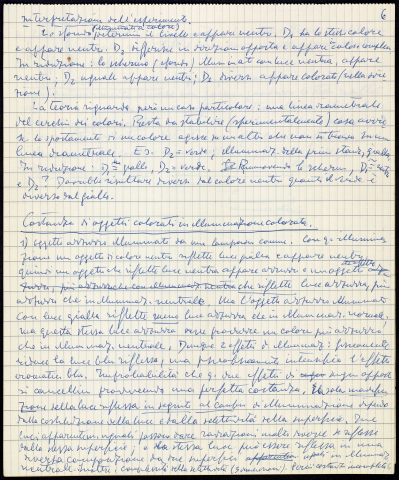 6
Interpretazione dell'esperimento.
Lo sfondo (illuminato a colore) determina il livello e appare neutro. D1 ha lo stesso colore
e appare neutro. D2 differisce in direzione opposta e appare colore complem.
In riduzione: lo schermo (e sfondo) illuminati con luce neutra, appare
neutro; D1 uguale appare neutro; D2 diverso appare colorato (nella direzione
zione).
La teoria riguarda però un caso particolare: una linea diametrale
del cerchio dei colori. Resta da stabilire (sperimentalmente) cosa avviene
se lo spostamento di un colore agisce su un altro che non si trova su una
linea diametrale. Es: D2 = verde, illuminaz. della prima stanza, gialla
In riduzione: D1 = giallo, D2 = verde. Rimuovendo lo schermo, D1 = neutr.
e D2? Dovrebbe risultare diverso dal colore neutro quanto il verde è
diverso dal giallo.
Costanza di oggetti colorati in illuminazione colorata.
1) Oggetti azzurri illuminati da una lampada comune. Con q. illumina
zione un oggetto di colore neutro riflette luce gialla e appare neutro
quindi un oggetto che riflette luce neutra appare azzurro e un oggetto
che riflette luce azzurra, più
azzurro che in illuminaz. neutrale. Ma l'oggetto azzurro illuminato
con luce gialla riflette meno luce azzurra che in illuminaz. normale.
ma questa stessa luce azzurra deve produrre un colore più azzurro
che in illuminaz. neutrale. Dunque 2 effetti di illuminaz: fisicamente
riduce la luce blu riflessa; ma percettivamente intensifica l'effetto
cromatico blu. Improbabilità che q. due effetti di segno opposto
si cancellino producendo una perfetta costanza. La sola modifica
zione della luce riflessa in seguito al cambio di illuminazione dipende
dalla costituzione della luce e dalla selettività della superficie. Due
luci apparentem. uguali possono dare radiazioni molto diverse se riflesse
dalla stessa superficie; e la stessa luce può essere riflessa in una
diversa composizione da due superfici uguali in illuminaz.
neutrale. Inoltre,